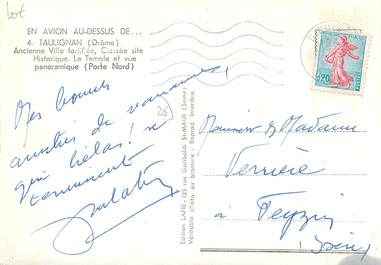 lot
EN AVION AU-DESSUS DE...
4. TAULIGNAN (Drôme)
Ancienne Ville fortifiée, Classée site
Historique. Le Temple et vue
panoramique (Porte Nord)
Mes bonnes
amitiés de vacances,
qui hélas! se
terminent
28
Edition LAPIE - 125 rue Garibaldi St-MAUR (Seine)
Véritable photo au bromure - Reprod. Interdite.
0,20
Monsieur & Madame
Verrière
à Feyzin
(Isère)